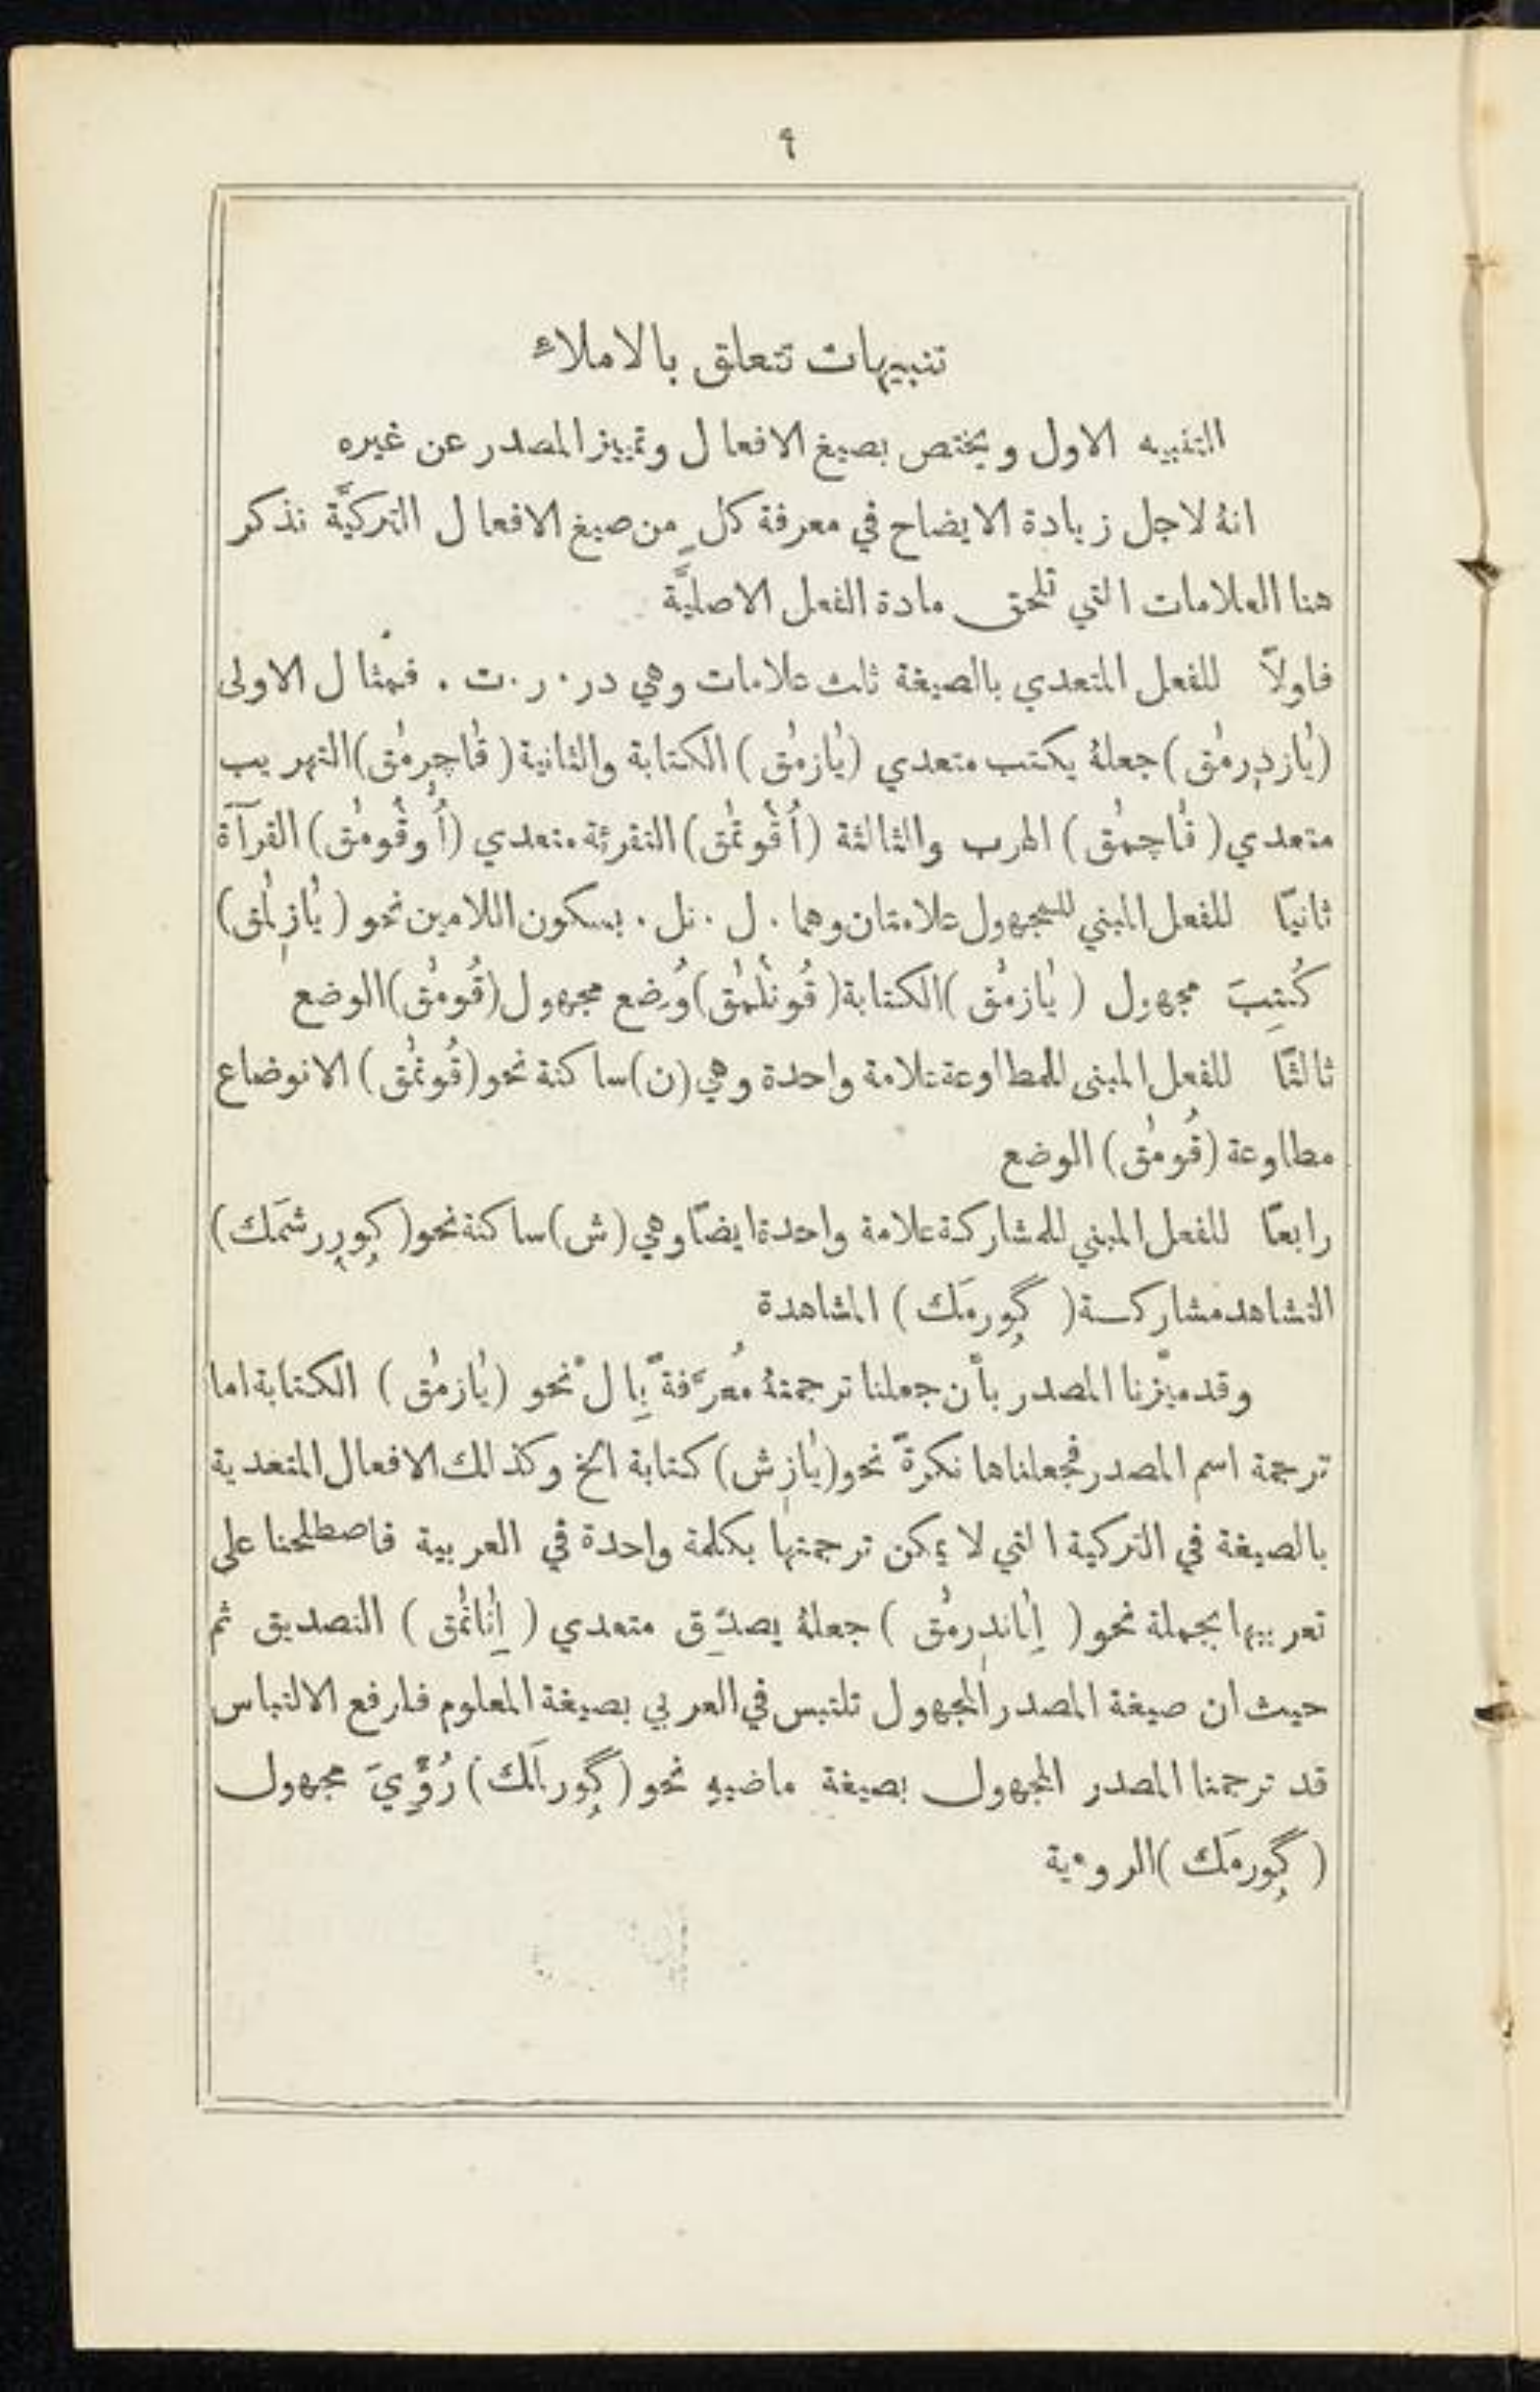 ٩
تنبيهات تتعلق بالاملاءِ
التنبيه الاول ويختص بصيغ الافعال وتمييز المصدر عن غيره
انهُ لاجل زيادة الايضاح في معرفة كلٍ من صيغ الافعال التركيَّة نذكر
هنا العلامات التي تلحق مادة الفعل الاصليَّة
فاولاً للفعل المتعدي بالصيغة ثلث علامات وهي در ٠ ر ٠ ت . فمثال الاولى
(يٰازدِرمٰق) جعلهُ يكتب متعدي (يٰازمٰق) الكتابة والثانية (قٰاچِرمٰق) التهريب
متعدي (قٰاچمٰق) الهرب والثالثة (أُقُوتمٰق) التقرئة متعدي (أُوقُومٰق) القرآءَة
ثانيًا للفعل المبني للمجهول علامتان وهما ٠ ل ٠ نل . بسكون اللامين نحو (يٰازِلمٰق)
كُتِبَ مجهول (يٰازمٰق) الكتابة (قُونُلمٰق) وُضِع مجهول (قُومٰق) الوضع
ثالثًا للفعل المبنى للمطاوعة علامة واحدة وهي (ن) ساكنة نحو (قُونمٰق) الانوضاع
مطاوعة (قُومٰق) الوضع
رابعًا للفعل المبني للمشاركة علامة واحدة ايضًا وهي (ش) ساكنة نحو (كِورِرشمَك)
التشاهد مشاركة (گِورمَك) المشاهدة
وقد ميّزنا المصدر بأن جعلنا ترجمتهُ مُعرَّفةً بِال نحو (يٰازمٰق) الكتابة اما
ترجمة اسم المصدر فجعلناها نكرةً نحو (يٰازِش) كتابة الخ وكذلك الافعال المتعدية
بالصيغة في التركية التي لا يمكن ترجمتها بكلمة واحدة في العربية فاصطلحنا على
تعريبها بجملة نحو (اِنٰاندِرمٰق) جعلهُ يصدّق متعدي (اِنٰانمٰق) التصديق ثم
حيث ان صيغة المصدر المجهول تلتبس في العربي بصيغة المعلوم فلرفع الالتباس
قد ترجمنا المصدر المجهول بصيغة ماضيهِ نحو (گِورلمَك) رُؤِيَ مجهول
(گِورمَك) الروءية